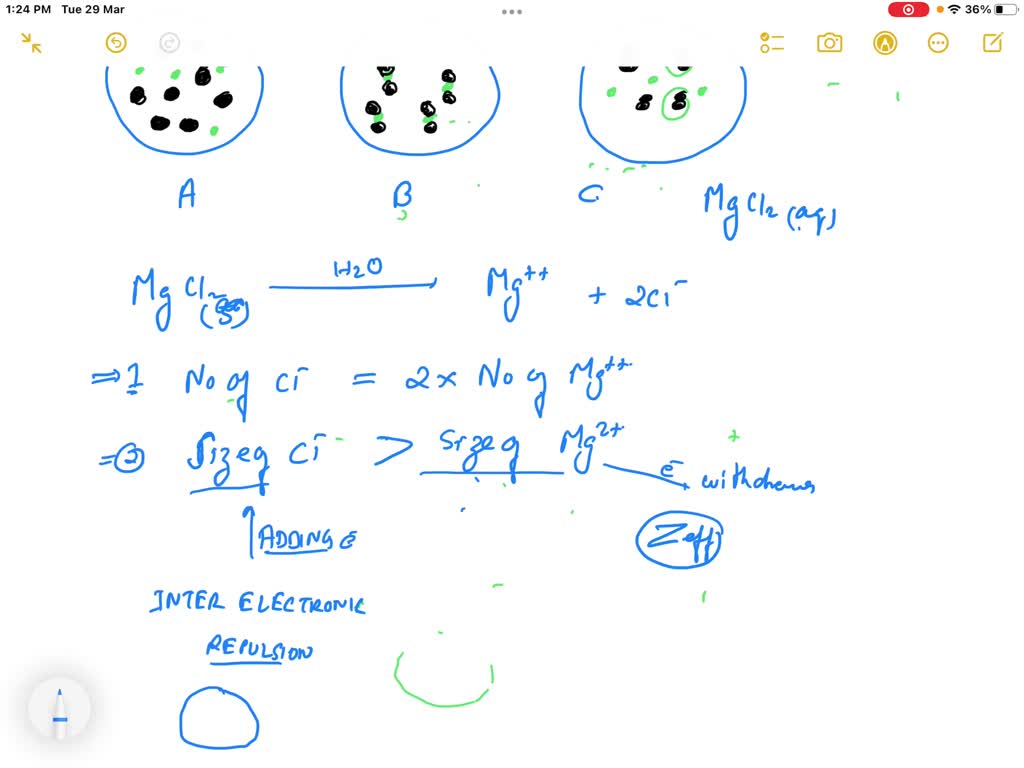 1:24 PM Tue 29 Mar
36%
A B C MgCl2 (aq)
MgCl2 (s) H2O Mg++ + 2Cl-
⇒ 1 No of Cl- = 2 x No of Mg++
⇒ 2 Size of Cl- > Size of Mg2+
e- withdraws
ADDING e-
Zeff
INTER ELECTRONIC
REPULSION